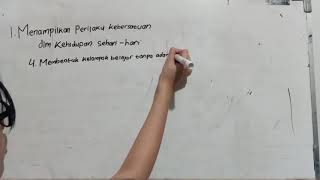 1. Menampilkan Perilaku kebersatuan
dlm Kehidupan sehari-hari
4. Membentuk kelompok belajar tanpa ada